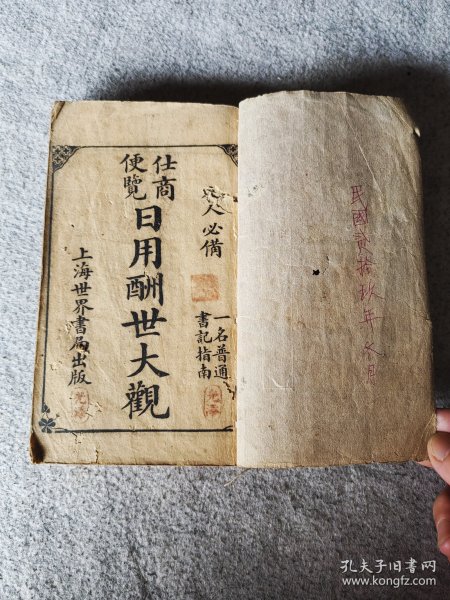 民國貳拾玖年冬月
人必備
一名普通
書記指南
仕商
便覽
日用酬世大觀
上海世界書局出版
孔夫子旧书网
www.kongfz.com